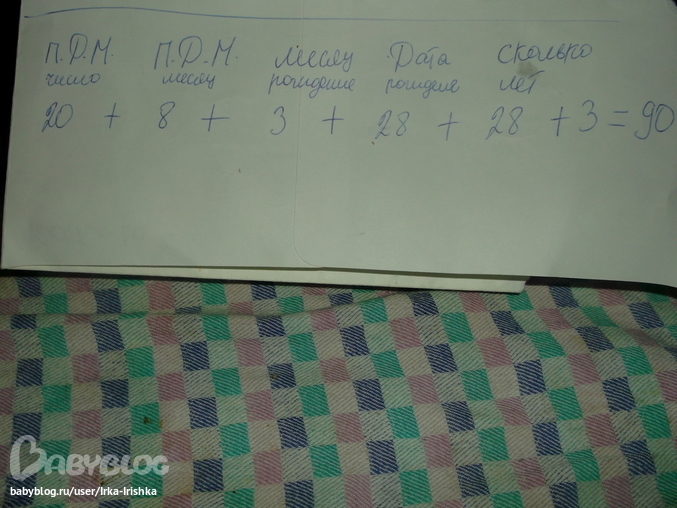 П.Д.М. П.Д.М. месяц Дата сколько
число месяц рождение рождение лет
20 + 8 + 3 + 28 + 28 + 3 = 90
BABYBLOG
babyblog.ru/user/Irka-Irishka